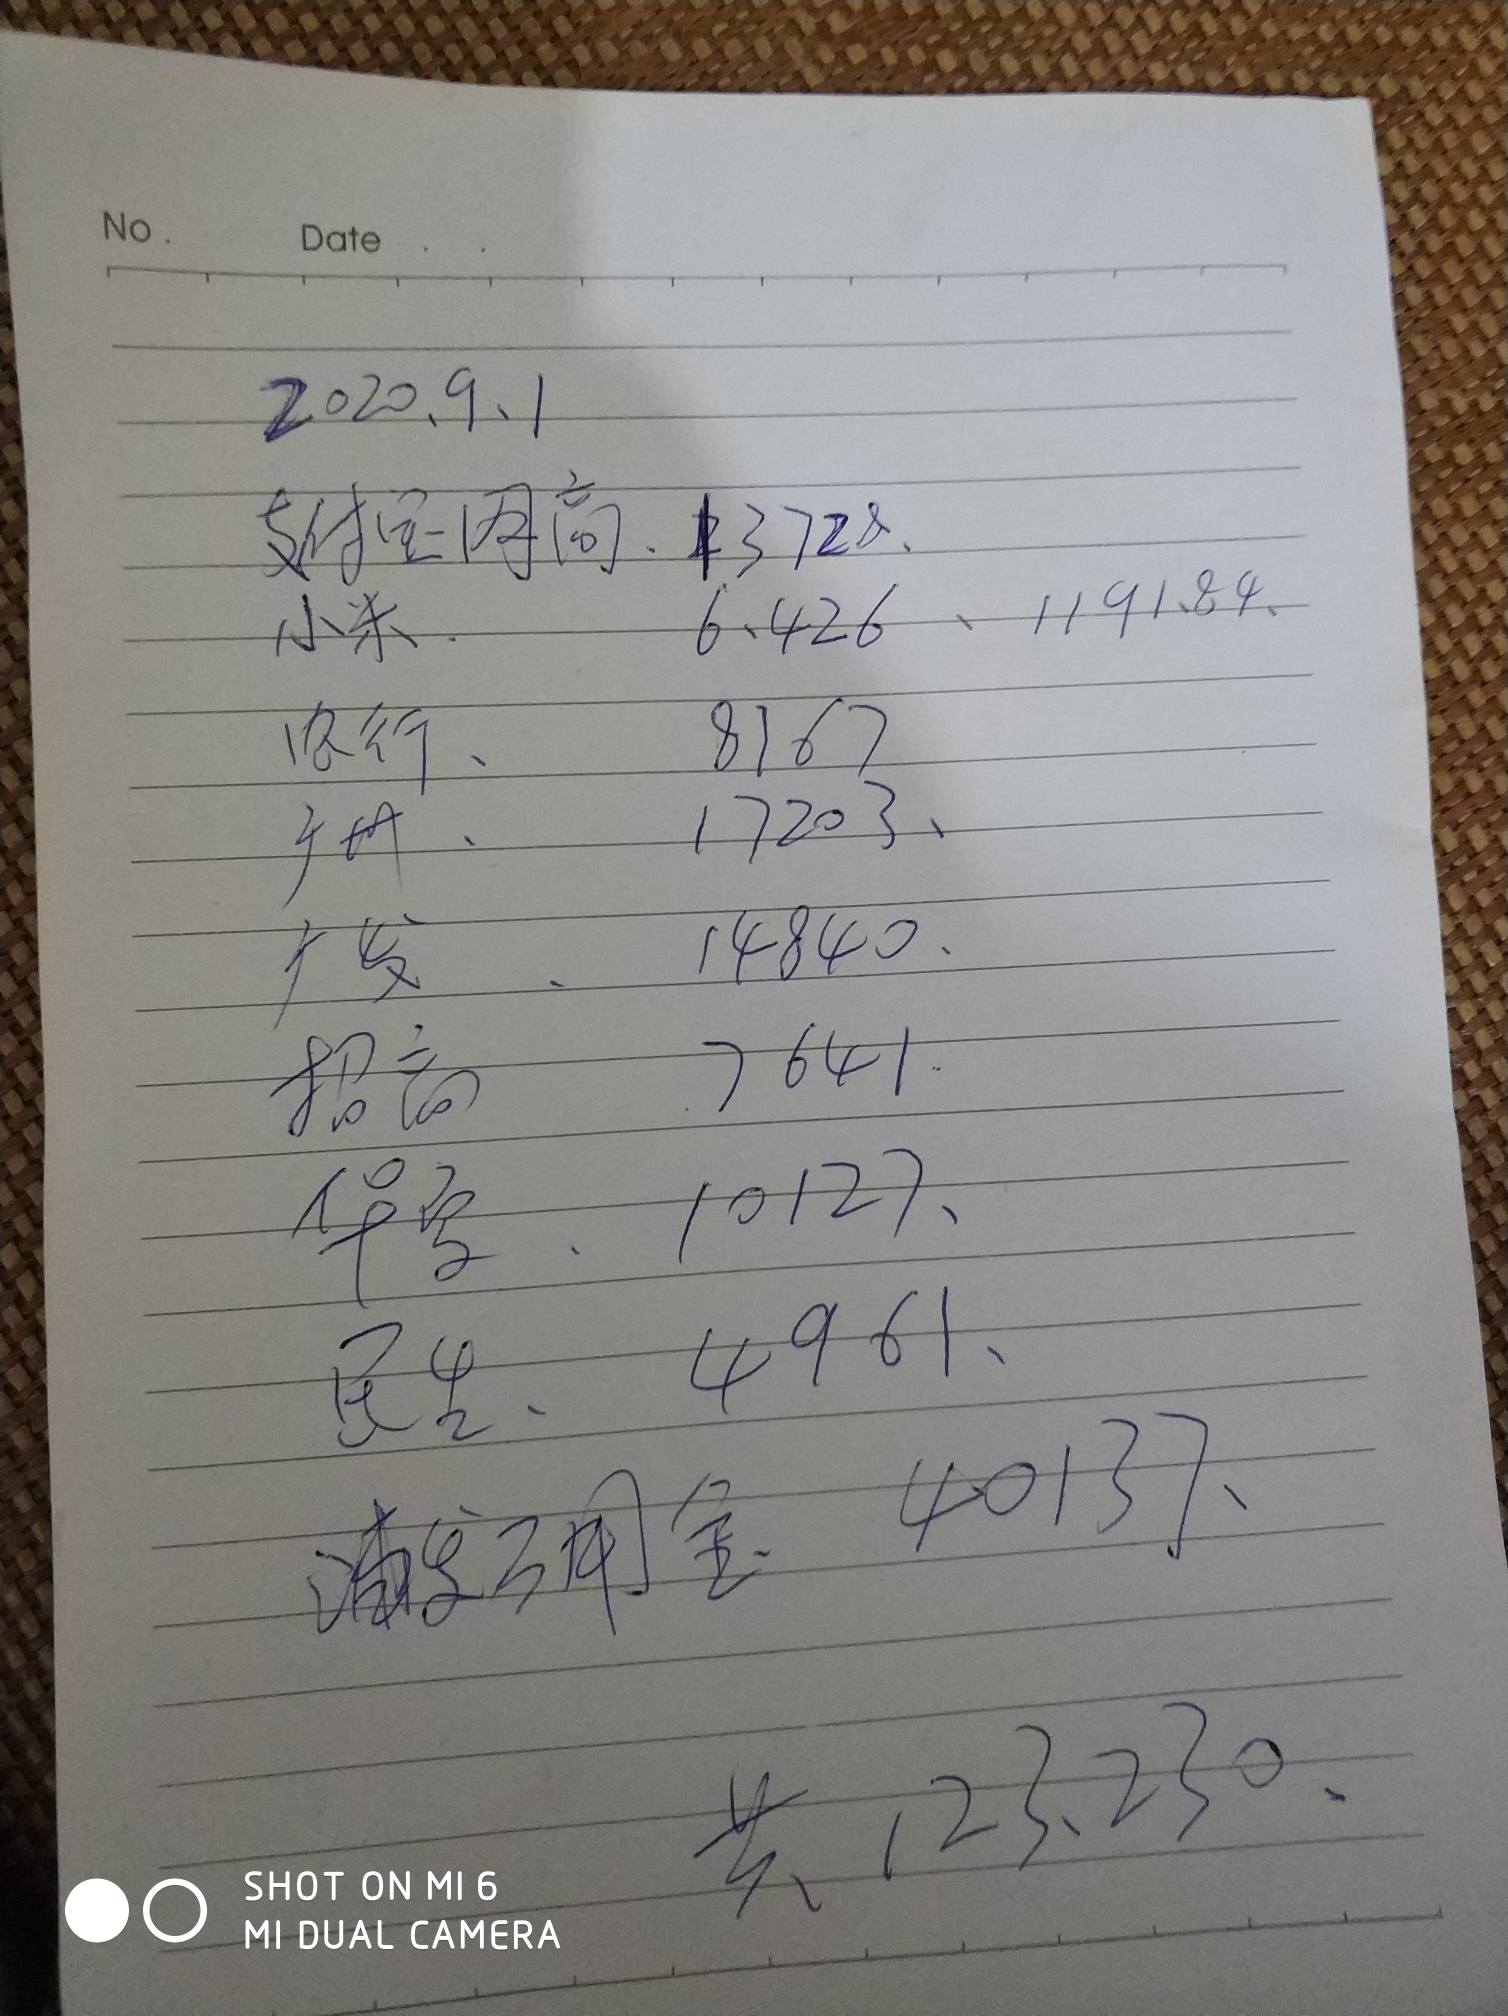 No. Date . .
2020、9、1
支付宝网商. 13728、
小米. 6、426 、1191.84、
农行、 8167
广州、 17203、
广发. 14840.
招商 7641.
华夏. 10127、
民生、 4961、
浦发万用金. 40137、
共、123、230、
SHOT ON MI 6
MI DUAL CAMERA